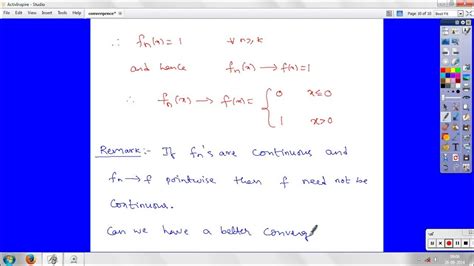 ActivInspire - Studio
File Edit View Insert Tools Help
convergence*
Best Fit
∴ fₙ(x) = 1 ∀ n ≥ k
and hence fₙ(x) → f(x) = 1
∴ fₙ(x) → f(x) = { 0 x ≤ 0
1 x > 0
Remark:- If fₙ's are continuous and
fₙ → f pointwise then f need not be
continuous.
Can we have a better converg